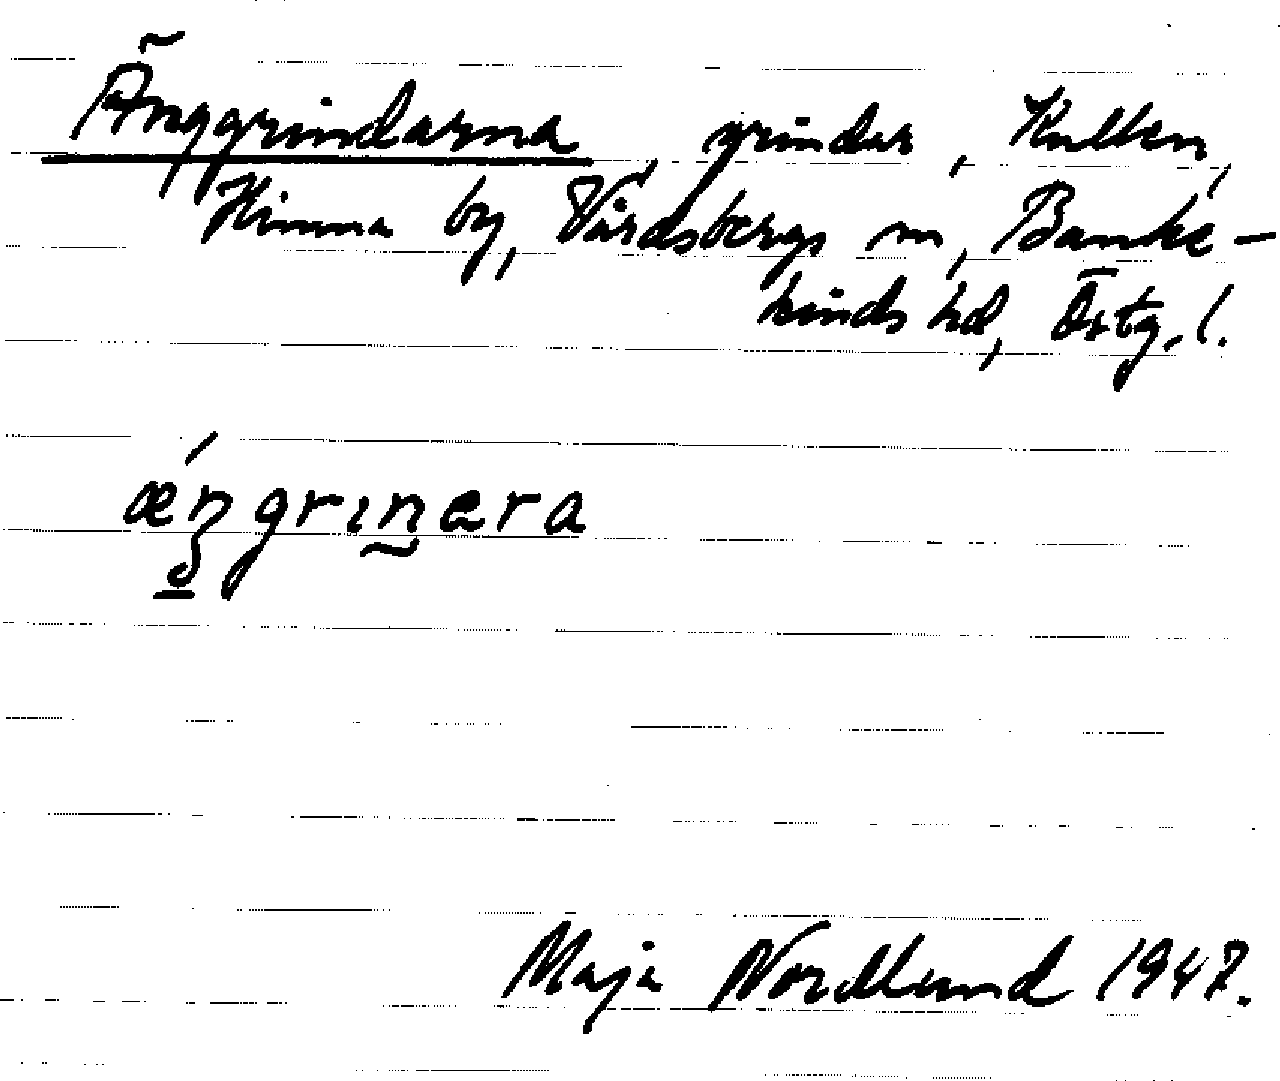 Änggrindarna, grindar, Kullen,
Himna by, Vårdsbergs sn, Banke-
kinds hd, Östg. l.
ǽŋgrin̰era
Maja Nordlund 1947.